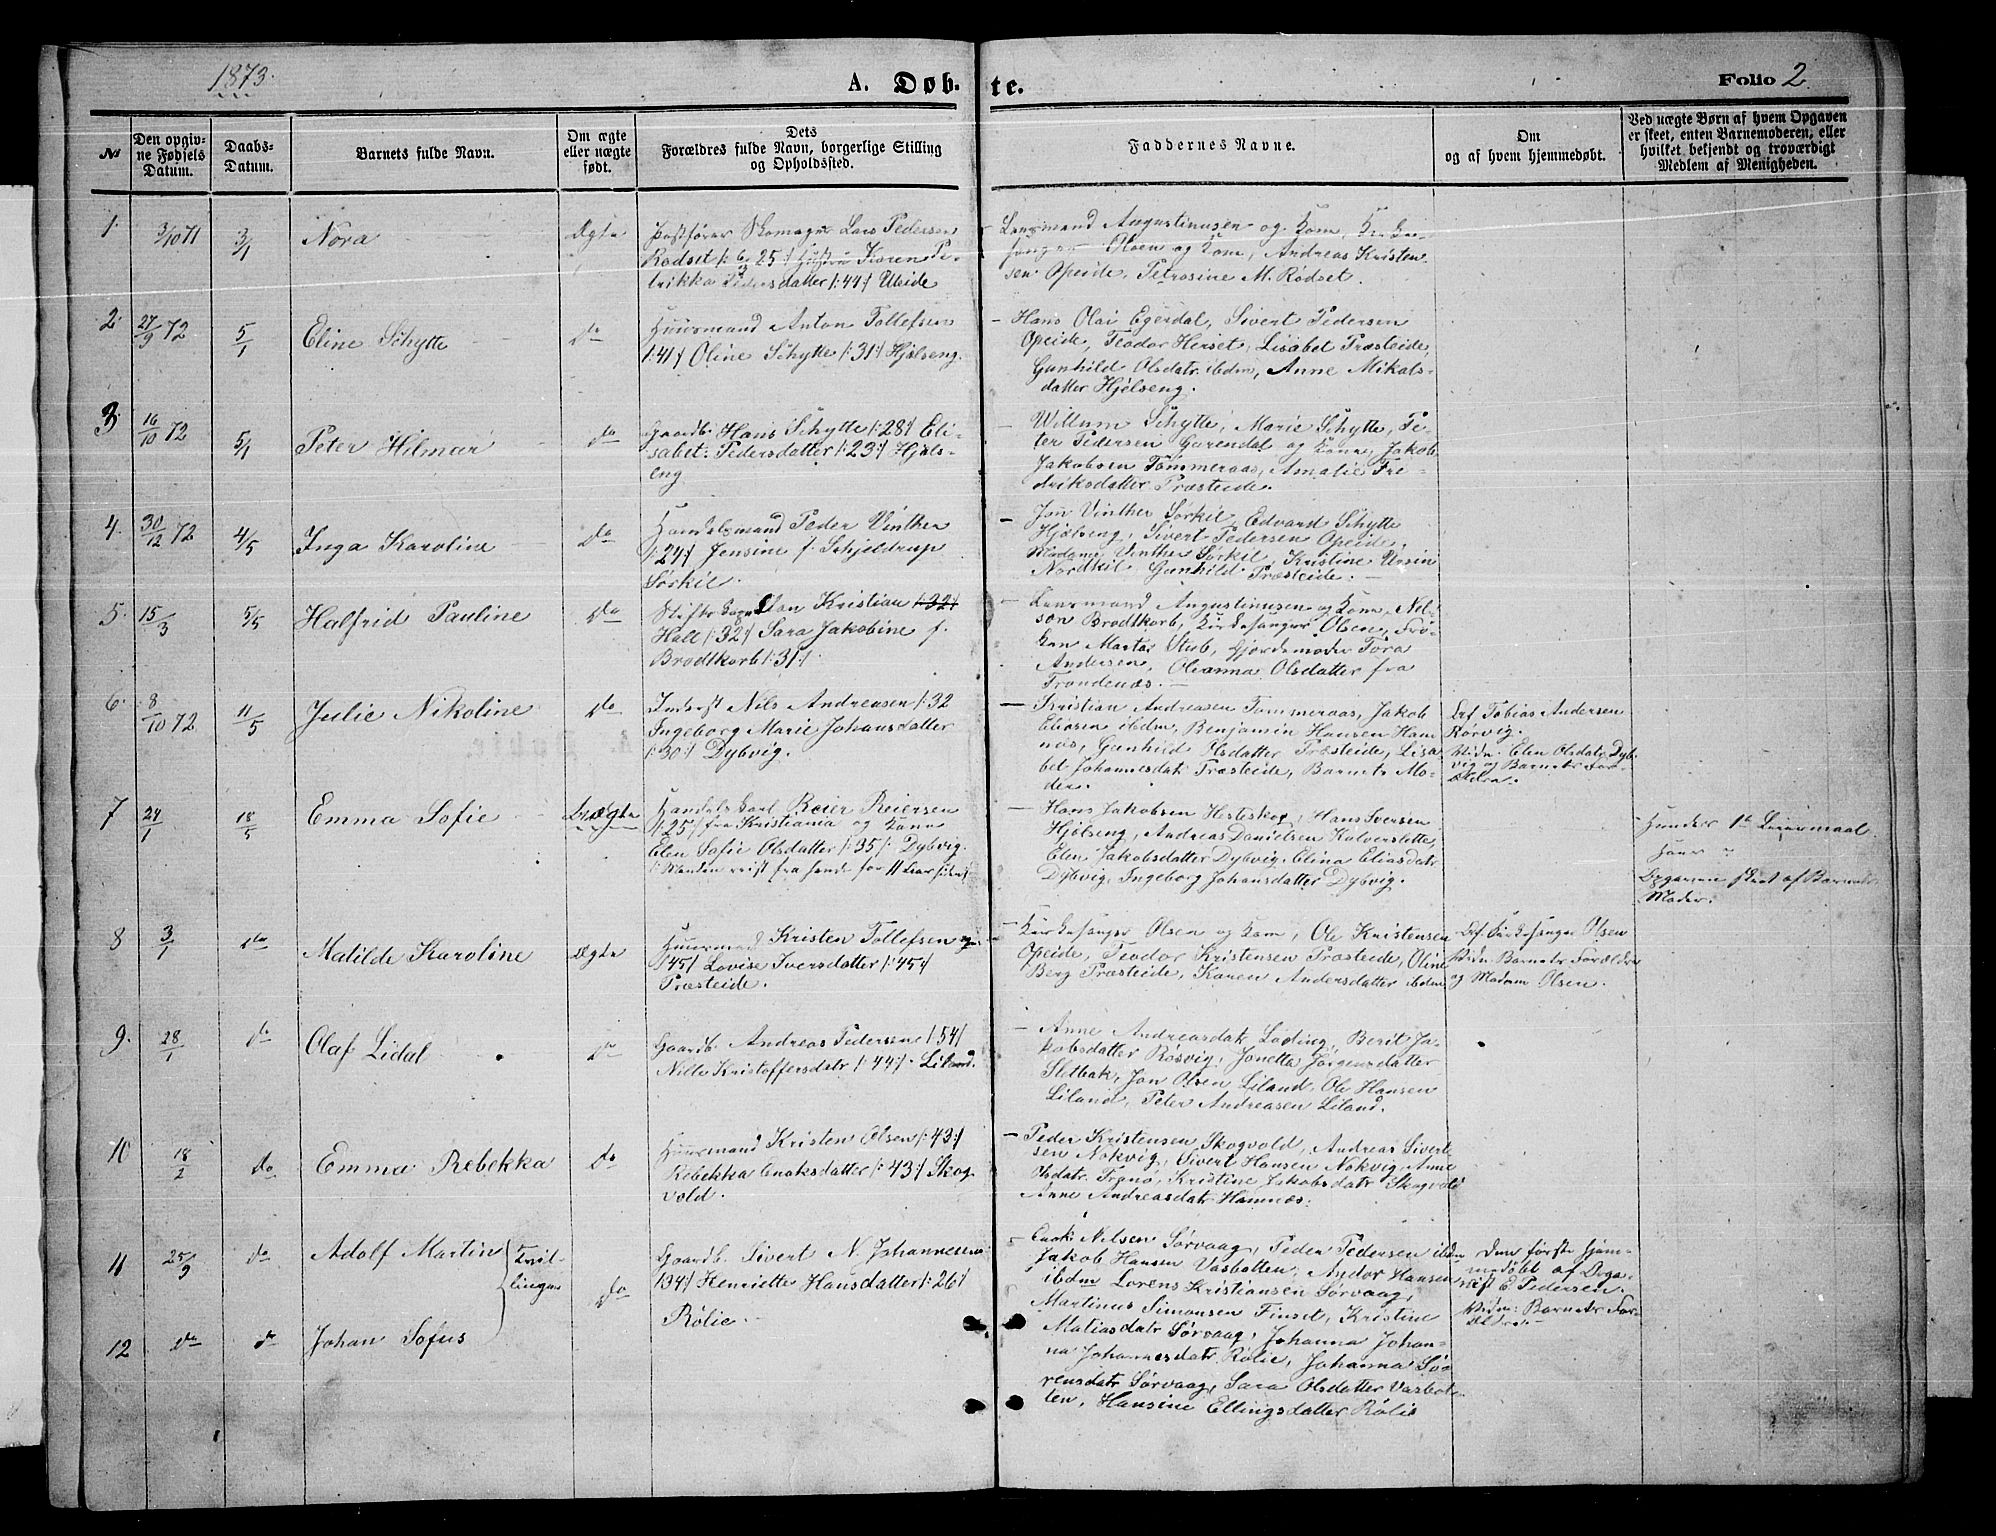 1873.
A. Døb- te.
Folio 2
No
Den opgiv-
ne Fødsels
Datum.
Daabs-
Datum.
Barnets fulde Navn.
Om ægte
eller uægte
født.
Dets
Forældres fulde Navn, borgerlige Stilling
og Opholdssted.
Faddernes Navne.
Om
og af hvem hjemmedøbt.
Ved uægte Børn af hvem Opgaven
er skeet, enten Barnemoderen, eller
hvilket bekjendt og troværdigt
Medlem af Menigheden.
1.
3/10 71
3/1
Nora
Ægte
Postfører Skomager Lars Pedersen
Rødset 25 Hustru Karen Pe-
trikka Pedersdatter /:44:/ Uleide
Lensmand Augustinusen og Kone, Kirke-
sanger Olsen og Kone, Andreas Kristen-
sen Opeide, Petrosine M. Rødset.
2.
27/9 72
5/1
Eline Schytte
do
Huusmand Anton Tollefsen
/:41:/ Oline Schytte /:31:/ Hjelseng.
Hans Olai Egerdal, Sivert Pedersen
Opeide, Teodor Herset, Lisabet Præsteide,
Gunhild Olsdatr. ibdm, Anne Mikals-
datter Hjelseng.
3
16/10 72
5/1
Peter Hilmar
do
Gaardb. Hans Schytte /:28:/ Eli-
sabet Pedersdatter /:23:/ Hjels-
eng
Willum Schytte, Marie Schytte, Pe-
ter Pedersen Garendal og Kone, Jakob
Jakobsen Tømmeraas, Amalie Fre-
driksdatter Præsteide.
4.
30/12 72
4/5
Inga Karoline
do
Handelsmand Peder Vinther
/:24:/ Jensine f. Schjeldrup
Sørkil.
Jon Vinther Sørkil, Edvard Schytte
Hjelseng, Sivert Pedersen Opeide,
Madame Vinther Sørkil, Kristine Ursin
Nordkil Gunhild Præsteide.
5.
15/3
5/5
Halfrid Pauline
do
Jan Kristian /:32:/
Hall /:32:/ Sara Jakobine f.
Brodtkorb /:31:/
Lensmand Augustinusen og Kone, Nel-
son Brodtkorb, Kirkesanger Olsen, Frø-
ken Marta Stub, Gjordemoder Tora
Andersen, Oleanna Olsdatter fra
Trondenæs.
6.
8/10 72
11/5
Julie Nikoline
do
Inderst Nils Andreasen /:32
Ingeborg Marie Johansdatter
/:30:/ Dybvig.
Kristian Andreasen Tømmeraas, Jakob
Eliasen ibdm, Benjamin Hansen Ham-
nes, Gunhild Olsdatter Præsteide, Lisa-
bet Johannesdatr. Præsteide, Barnets Mo-
der.
Af Tobias Andersen
Rørvig.
Vidn. Elen Olsdatr. Dyb-
vig og Barnets For-
ældre.
7
24/1
18/5
Emma Sofie
Uægte
Handelskarl Reier Reiersen
/:25:/ fra Kristiania og Kone
Elen Sofie Olsdatter /:35:/ Dybvig.
/: Manden reist fra hende for 11 Aar siden :/
Hans Jakobsen Hesteskog, Hans Iversen
Hjelseng, Andreas Danielsen Kalverslette,
Elen Jakobsdatter Dybvig, Elina Eliasdatr.
Dybvig, Ingeborg Johansdatter Dybvig.
Hendes 1te Leiermaal
Hans "
Opgaven skeet af Barnets
Moder.
8
3/1
do
Matilde Karoline
Ægte
Huusmand Kristen Tollefsen og
/:45/ Lovise Iversdatter /:45:/
Præsteide.
Kirkesanger Olsen og Kone, Ole Kristensen
Opeide, Teodor Kristensen Præsteide, Oline
Berg Præsteide, Karen Andersdatter ibdm
Af Kirkesanger Olsen
Vidn. Barnets Forældre
og Madam Olsen.
9.
28/1
do
Olaf Lidal
do
Gaardb. Andreas Pedersen /:54/
Nille Kristoffersdatr. /:44:/ Liland.
Anne Andreasdatr. Løding, Berit Ja-
kobsdatter Røsvig, Jonetta Jørgensdatter
Sletbak, Jon Olsen Liland, Ole Hansen
Liland, Peter Andreasen Liland.
10
18/2
do
Emma Rebekka
do
Huusmand Kristen Olsen /:43:/
Rebekka Enoksdatter /:43:/ Skog
vold.
Peder Kristensen Skogvold, Andreas Sivert-
sen Nøkvig, Sivert Hansen Nøkvig, Anne
Olsdatr. Tranø, Kristine Jakobsdatr. Skogvold
Anne Andreasdatr. Hamnes.
11
25/3
do
Adolf Martin
Tvil-
linger
do
Gaardb. Sivert N. Johannesen
/:34:/ Henriette Hansdatter /:26/
Rølie.
Enok Nilsen Sørvaag, Peder Pedersen ibdm
Jakob Hansen Vasbotten, Andor Hansen
ibdm Lorens Kristiansen Sørvaag,
Martinus Simonsen Finset, Kristine
Matiasdatr. Sørvaag, Johanna Johan-
na Johannesdatr. Rølie, Johanna Sø-
rensdatr. Sørvaag, Sara Olsdatter Vasbot-
ten, Hansine Ellingsdatter Rølie
Den første hjem-
medøbt af Orga-
nist E. Pedersen.
Vidn: Barnets For-
ældre.
12
do
do
Johan Sofus